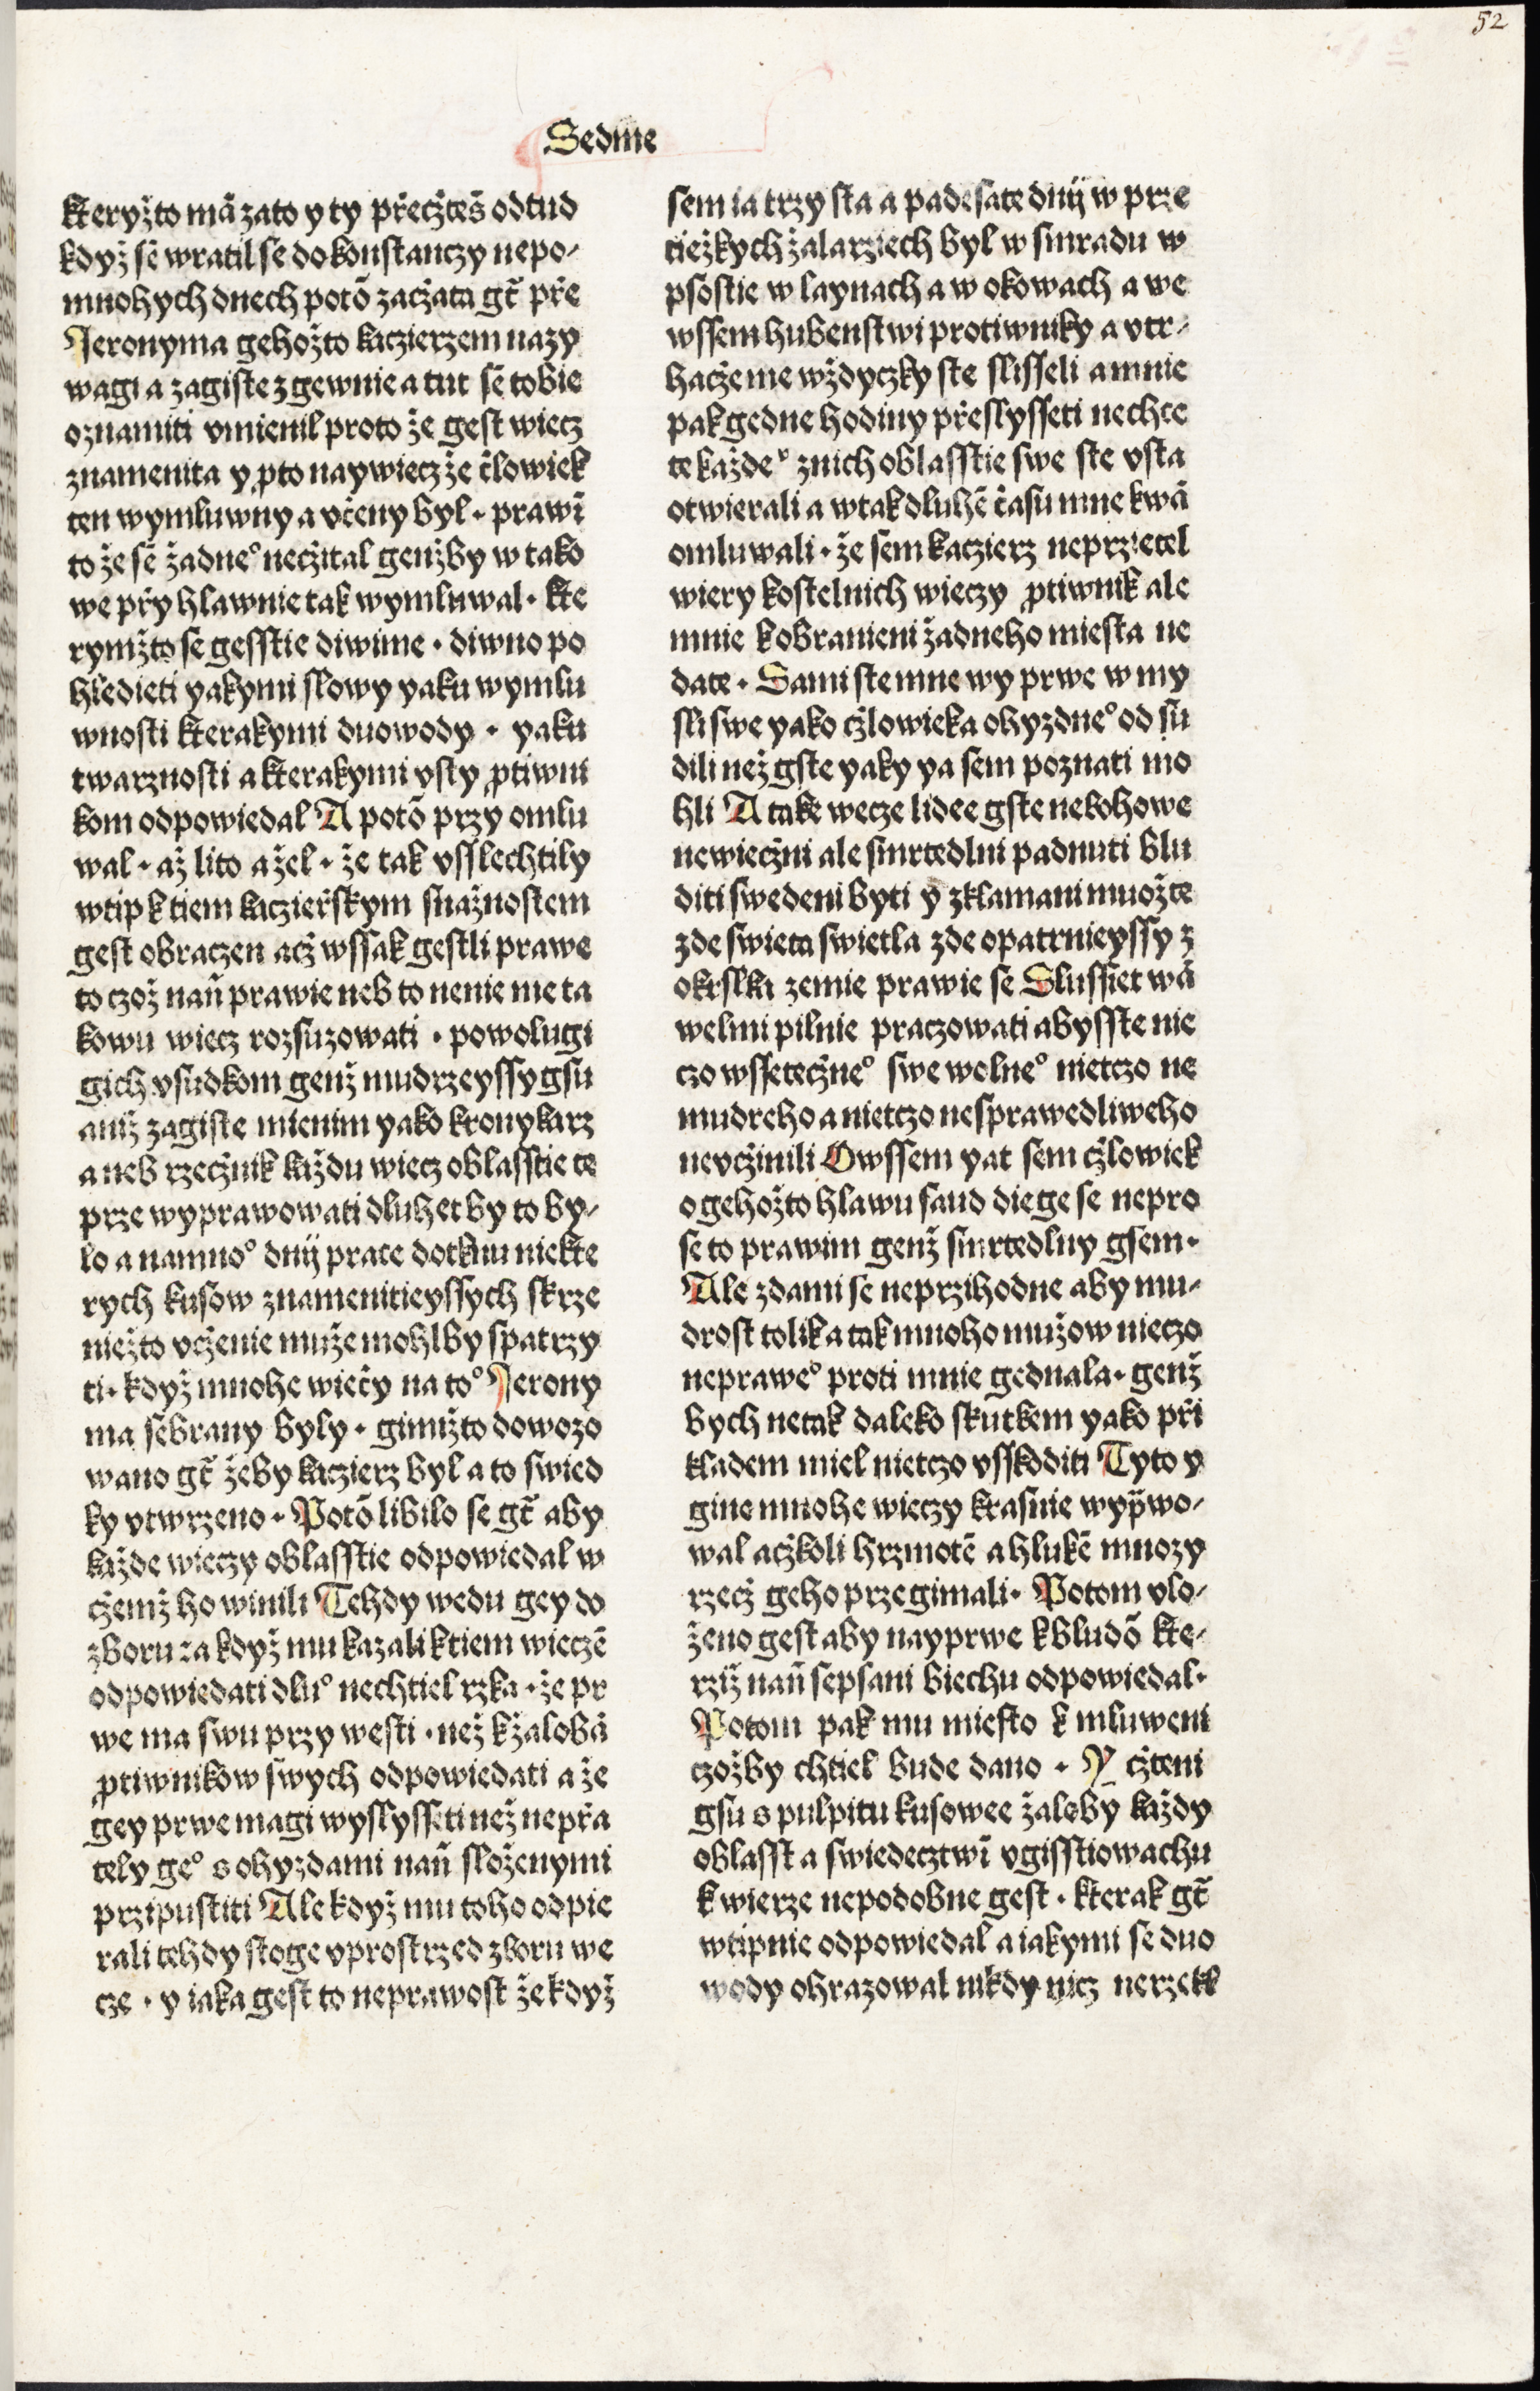 52
Sedme
kteryžto mā zato y ty přečżtes̄ odtud
když sē wratil se do konstanczy nepo-
mnohych dnech potō začżata gt̄ pr̄e
Jeronyma gehožto kaczierzem nazy
wagi a zagiste z gewnie a tut sē tobie
oznamiti vmienil proto že gest wiecz
znamenita y ꝓto naywiecz že člowiek
ten wymluwny a včeny byl · prawī
to že sē žadneͦ nečżital genžby w tako
we při hlawnie tak wymluwal · kte
rymžto se gesstie diwime · diwno po
hledieti yakymi slowy yaku wymlu
wnosti kterakymi duowody · yaku
twarznosti a kterakymi vsty ꝓtiwni
kom odpowiedal A potō przy omlu
wal · až lito a žel · že tak vsslechtily
wtip k tiem kaczieřskym snažnostem
gest obraczen ačż wssak gestli prawe
to czož nan̄ prawie neb to nenie me ta
kowu wiecz rozsuzowati · powolugi
gich vsudkom genž mudrzeyssy gsu
aniž zagiste mienim yako kronykarz
aneb rzečżnik každu wiecz oblasstie te
prze wyprawowati dluhet by to by-
lo a namnoͦ dnij prace dotknu niekte
rych kusow znamenitieyssych skrze
niežto včżenie muže mohlby spatrzy
ti · když mnohe wiečy na toͦ Jerony
ma sebrany byly · gimižto dowozo
wano gt̄ žeby kaczierz byl a to swied
ky vtwrzeno · Potō libilo se gt̄ aby
každe wieczy oblasstie odpowiedal w
čżemž ho winili Tehdy wedu gey do
zboru : a když mu kazali k tiem wieczē
odpowiedati dluͦ nechtiel rzka · že pr
we ma swu przy westi · než k žalobā
ꝓtiwnikow swych odpowiedati a že
gey prwe magi wyslysseti než nepřa
tely geͦ s ohyzdami nan̄ složenymi
przipustiti Ale když mu toho odpie
rali tehdy stoge vprostrzed zboru we
cze · y iaka gest to neprawost že když
sem ia trzy sta a padesate dnij w prze
tiežkych žalarziech byl w smradu w
psostie w laynach a w okowach a we
wssem hubenstwi protiwniky a vtr-
hačże me wždyczky ste slisseli a mnie
pak gedne hodiny přeslysseti nechce
te každeͦ z nich oblasstie swe ste vsta
otwierali a w tak dluhē času mne k wā
omluwali · že sem kaczierz neprzietel
wiery kostelnich wieczy ꝓtiwnik ale
mnie k obranieni žadneho miesta ne
date · Sami ste mne wy prwe w my
sli swe yako čżlowieka ohyzdneͦ od su
dili než gste yaky ya sem poznati mo
hli A take wecze lidee gste nekohowe
newiečżni ale smrtedlni padnuti blu
diti swedeni byti y zklamani muožte
zde swieta swietla zde opatrnieyssy z
okrslku zemie prawie se Slussiet wā
welmi pilnie praczowati abysste nie
czo wssetečżneͦ swe wolneͦ nietczo ne
mudreho a nietczo nesprawedliweho
nevčżinili Owssem yat sem čżlowiek
o gehožto hlawu saud diege se nepro
se to prawim genž smrtedlny gsem ·
Ale zdami se neprzihodne aby mu-
drost tolika tak mnoho mužow nieczo
neprawеͦ proti mnie gednala · genž
bych netak daleko skutkem yako při
kladem miel nietczo vsskoditi Tyto y
gine mnohe wieczy krasnie wyp̄wo-
wal ačżkoli hrzmotē a hlukē mnozy
rzečż geho przegimali · Potom vlo-
ženo gest aby nayprwe k bludō kte-
rziž nan̄ sepsani biechu odpowiedal ·
Potom pak mu miesto k mluweni
czožby chtiel bude dano · Y čżteni
gsu s pulpitu kusowee žaloby každy
oblasst a swiedecztwī vgisstiowachu
k wierze nepodobne gest · kterak gt̄
wtipnie odpowiedal a iakymi se duo
wody ohrazowal nikdy nicz nerzekl